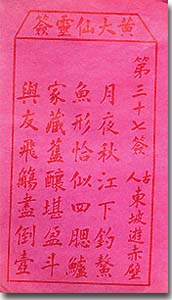 黃大仙靈簽
第三十七簽
古人東坡遊赤壁
月夜秋江下釣鰲
魚形恰似四腮鱸
家藏舊釀堪盈斗
與友飛觴盡倒壺